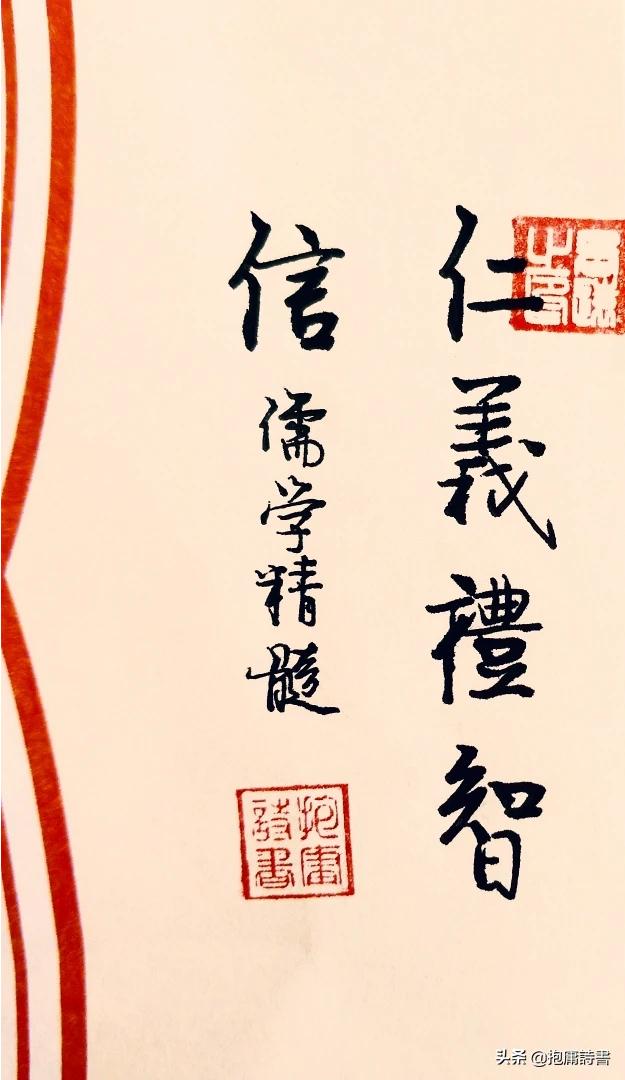 仁義禮智
信
儒学精髓
抱庸
詩書
头条 @抱庸詩書